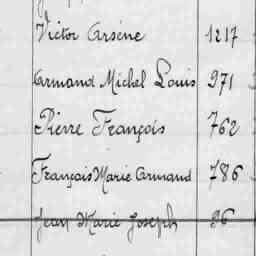 Victor Arsène 1217
Armand Michel Louis 971
Pierre François 762
François Marie Armand 786
Jean Marie Joseph 96